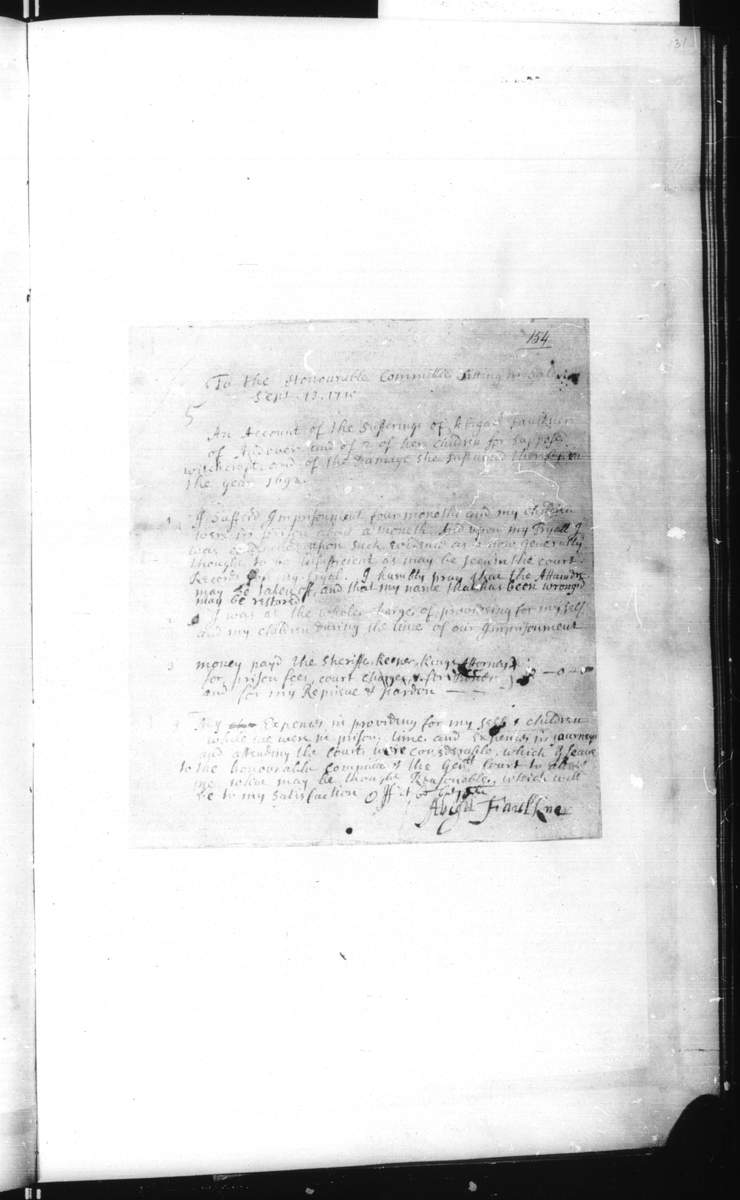 131
154
To the Honourable Committee Sitting in Salem
Sept. 13. 1710
5
An Account of the Sufferings of Abigail Faulkner
of Andover and of 2 of her children for supposed
witchcraft, and of the Damage she sustained thereby in
the year 1692.
1 I suffered Imprisonment four months and my children
were in prison about a month. And upon my Tryall I
was upon such evidence as is now generally
thought to be insufficient as may be seen in the court
Records of my tryal. I humbly pray that the Attainder
may be taken off, and that my name that has been wronged
may be restored
2 I was at the whole charges of providing for my self
and my children during the time of our Imprisonment
3 money payd the Sheriffe, Keeper, Kings Attorney
for prison fees, court charges,
and for my Reprieve & pardon
4 My Expences in providing for my self & children
while we were in prison, time and Expences in journeys
and attending the court were considerable, which I leave
to the honourable committee & the Genll Court to allow
me what may be thought Reasonable, which will
be to my Satisfaction
Abigll Faulkner